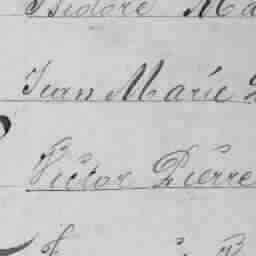 Isidore Ma
Jean Marie
Victor Pierre